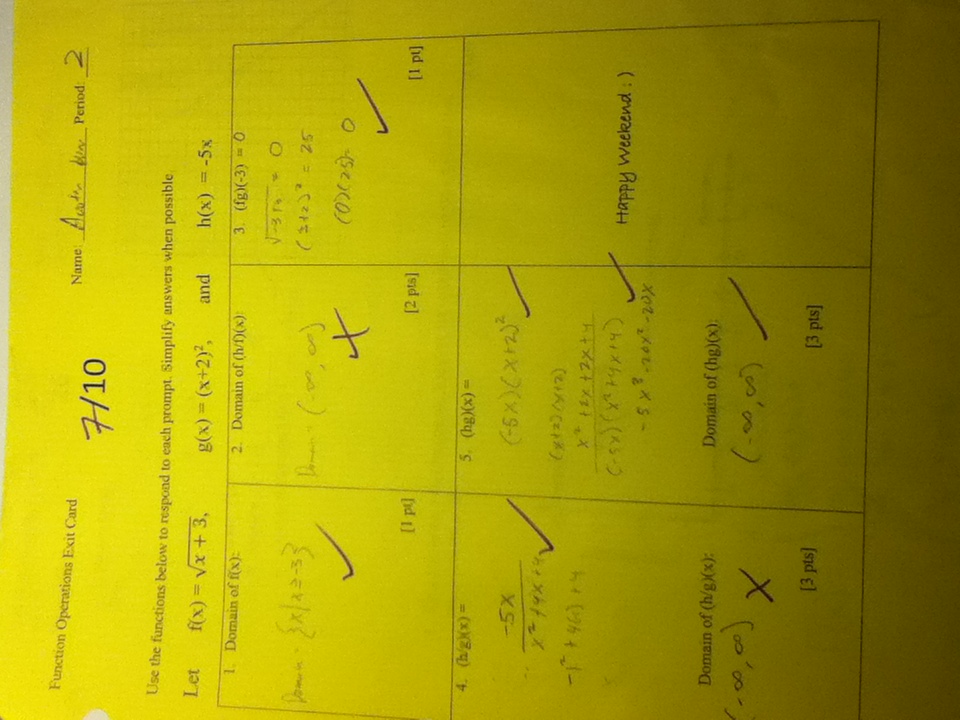 Function Operations Exit Card
Name: Period: 2
7/10
Use the functions below to respond to each prompt. Simplify answers when possible
Let f(x) = √x + 3, g(x) = (x+2)², and h(x) = -5x
1. Domain of f(x):
Domain = {x|x≥-3}
[1 pt]
2. Domain of (h/f)(x):
Domain = (-∞, ∞)
[2 pts]
3. (fg)(-3) = 0
= 0
(3+2)² = 25
(0)(25)= 0
[1 pt]
4. (h/g)(x) =
-5x
x² +4x +4
+ 4
Domain of (h/g)(x):
(-∞, ∞)
[3 pts]
5. (hg)(x) =
(-5x)(x+2)²
(x+2)(x+2)
x² +2x +2x +4
(-5x)(x²+4x+4)
-5x³-20x²-20x
Domain of (hg)(x):
(-∞, ∞)
[3 pts]
Happy Weekend : )